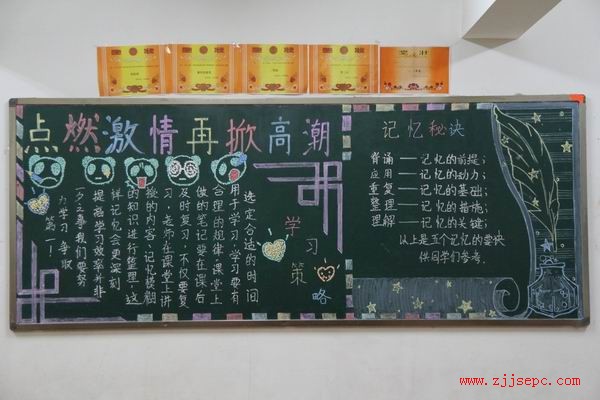 奖状
点燃激情再掀高潮
学习策略
选定合适的时间
用于学习,学习要有
合理的规律,课堂上
做的笔记要在课后
及时复习,不仅要复
习,老师在课堂上讲
授的内容,记忆模糊
的知识进行整理,这
样记忆会更深刻
提高学习效率并非
一夕之事,我们要努
力学习,争取
第一!
记忆秘诀
背诵——记忆的前提;
应用——记忆的动力;
重复——记忆的基础;
整理——记忆的措施;
理解——记忆的关键;
以上是五个记忆的要诀
供同学们参考。
www.zjjsepc.com